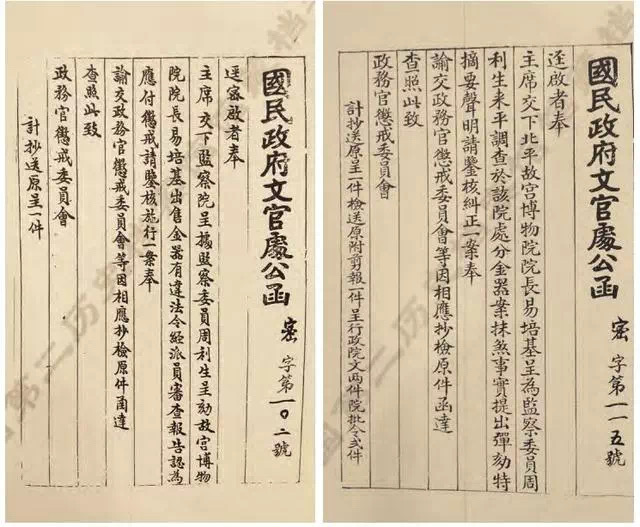 國民政府文官處公函 密字第一〇二號
逕密啟者奉
主席交下監察院呈據監察委員周利生呈劾故宮博物
院院長易培基出售金器有違法令經派員審查報告認為
應付懲戒請鑒核施行一案奉
諭交政務官懲戒委員會等因相應抄檢原件函達
查照此致
政務官懲戒委員會
計抄送原呈一件
國民政府文官處公函 密字第一一五號
逕啟者奉
主席交下北平故宮博物院院長易培基呈為監察委員周
利生來平調查於該院處分金器案抹煞事實提出彈劾特
摘要聲明請鑒核糾正一案奉
諭交政務官懲戒委員會等因相應抄檢原件函達
查照此致
政務官懲戒委員會
計抄送原呈一件 檢送原附剪報一件 呈行政院文兩件院批令弍件